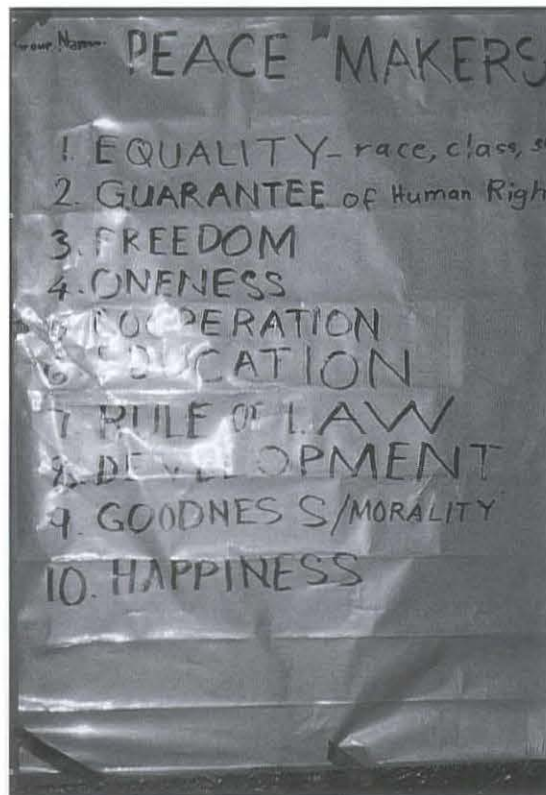 Your Name
PEACE MAKERS
1. EQUALITY - race, class,
2. GUARANTEE of Human
3. FREEDOM
4. ONENESS
5 COOPERATION
6 EDUCATION
7 RULE OF LAW
8. DEVELOPMENT
9. GOODNESS/MORALITY
10. HAPPINESS